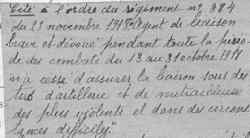 Cité à l'ordre du régiment n° 484
du 23 novembre 1918 "Agent de liaison
brave et dévoué pendant toute la période
des combats du 13 au 31 octobre 1918
n'a cessé d'assurer la liaison sous des
tirs d'artillerie et de mitrailleuses
des plus violents et dans des circons
tances difficiles"